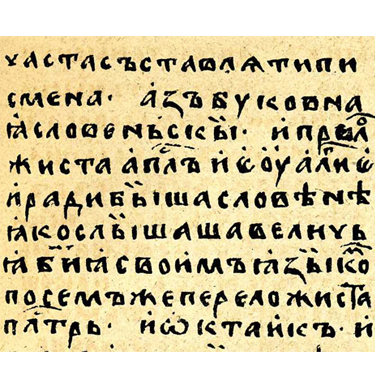 частасъставлѧтипи
смена· азъбуковна
ꙗсловеньскꙑ· ипрѣлⷪ
жиста апл҃ъ иєѵа҃лиє
ирадибꙑшасловѣнѣ
ꙗкослꙑшашавеличь
ꙗ би҃ꙗсвоимъꙗзꙑкоⷨ
посемъжепереложиста
пл҃трь· иѡктаикъ· и